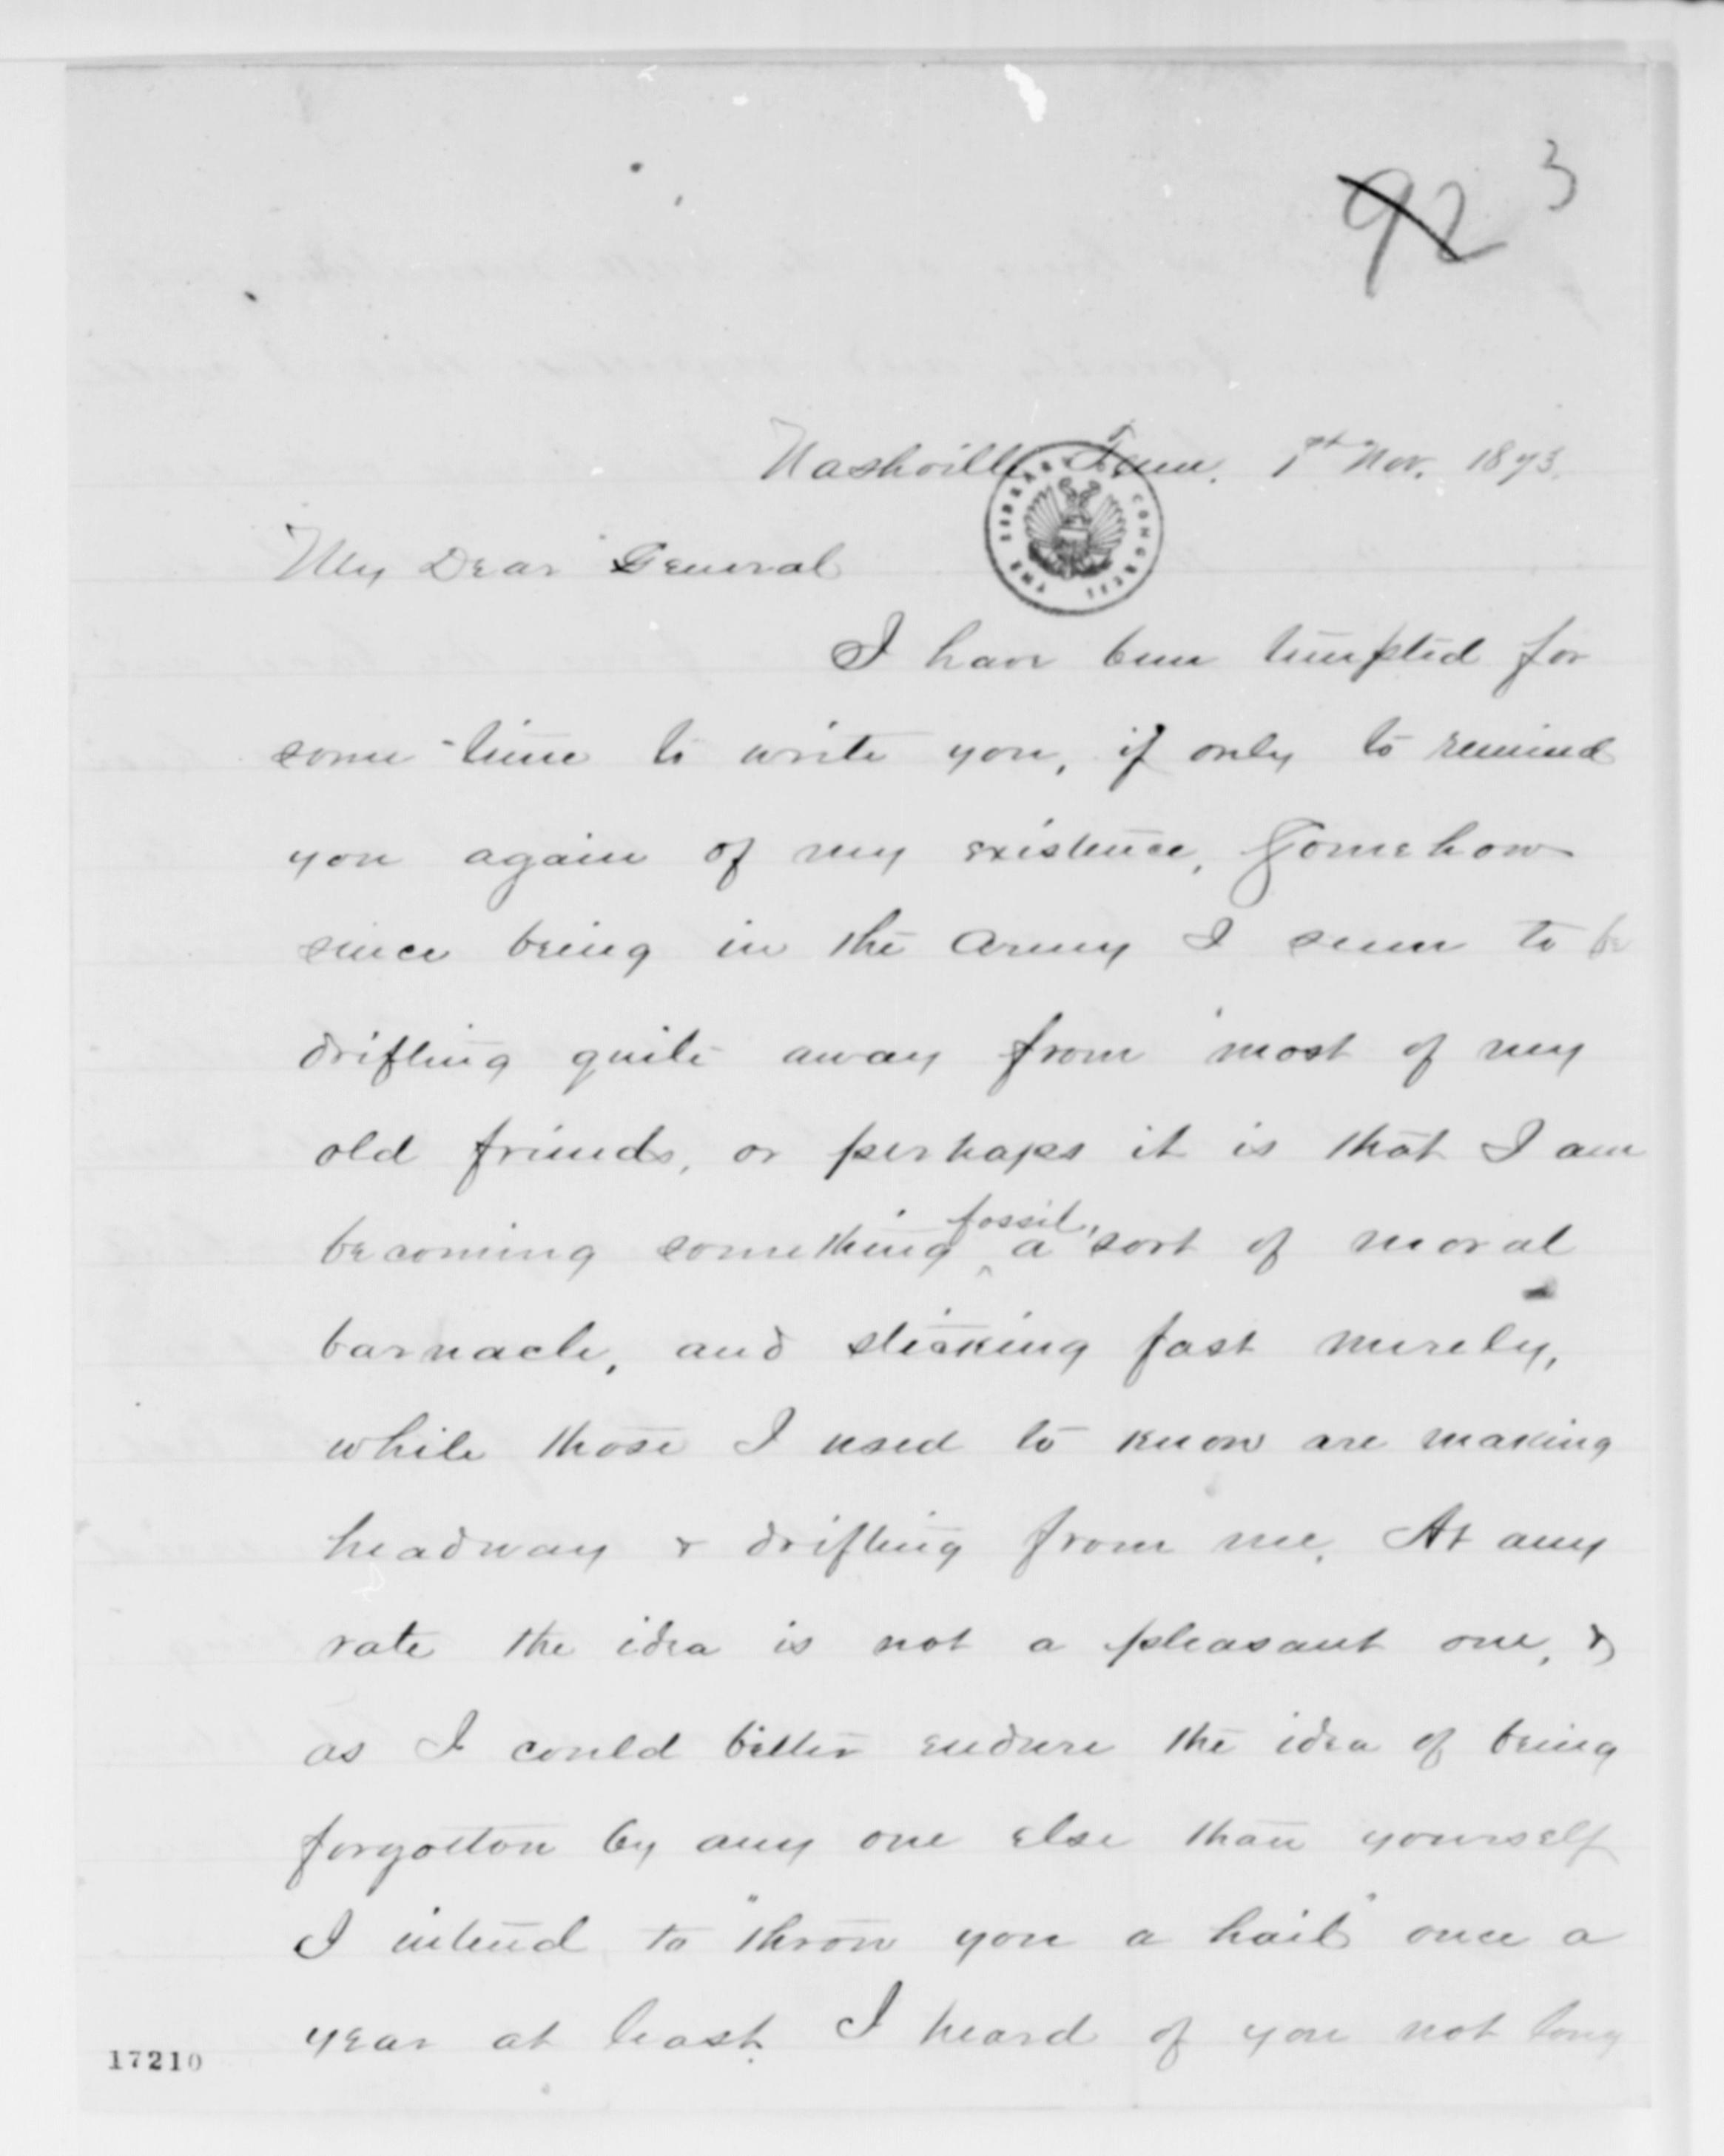 92 3
Nashville Tenn. 1st Nov. 1873.
THE LIBRARY CONGRESS
My Dear General
I have been tempted for
some time to write you, if only to remind
you again of my existence, Somehow
since being in the Army I seem to be
drifting quite away from most of my
old friends, or perhaps it is that I am
becoming something fossil, a sort of moral
barnacle, and sticking fast merely,
while those I used to know are making
headway & drifting from me. At any
rate the idea is not a pleasant one, &
as I could better endure the idea of being
forgotton by any one else than yourself
I intend to "throw you a hail" once a
year at least. I heard of you not long
17210